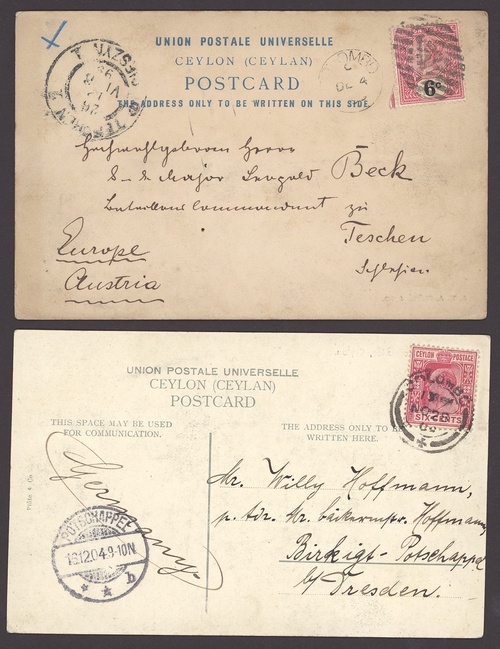 UNION POSTALE UNIVERSELLE
CEYLON (CEYLAN)
POSTCARD
THE ADDRESS ONLY TO BE WRITTEN ON THIS SIDE
6c
TESCHEN 2
Hochwohlgeboren Herrn
Major Leopold Beck
Bataillons Commandant zu
Teschen
Schlesien
Europe
Austria
UNION POSTALE UNIVERSELLE
CEYLON (CEYLAN)
POSTCARD
THIS SPACE MAY BE USED
FOR COMMUNICATION.
THE ADDRESS ONLY TO BE
WRITTEN HERE.
CEYLON POSTAGE
SIX CENTS
COLOMBO
Germany
Mr. Willy Hoffmann,
p. Adr. Mr. Hoffmann
Birkigt-Potschappel
b/ Dresden.
POTSCHAPPEL
16.12.04.8-10N
b
Plâté & Co